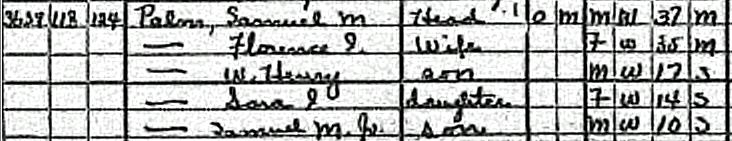 3639 118 124 Palm, Samuel M Head 1 O M M W 37 M
— Florence I. Wife F W 35 M
— W. Henry son M W 17 S
— Sara I daughter F W 14 S
— Samuel M. Jr. son M W 10 S